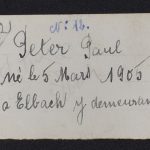 N: 12.
Peter Paul
né le 5 Mars 1905
a Elbach y demeurant